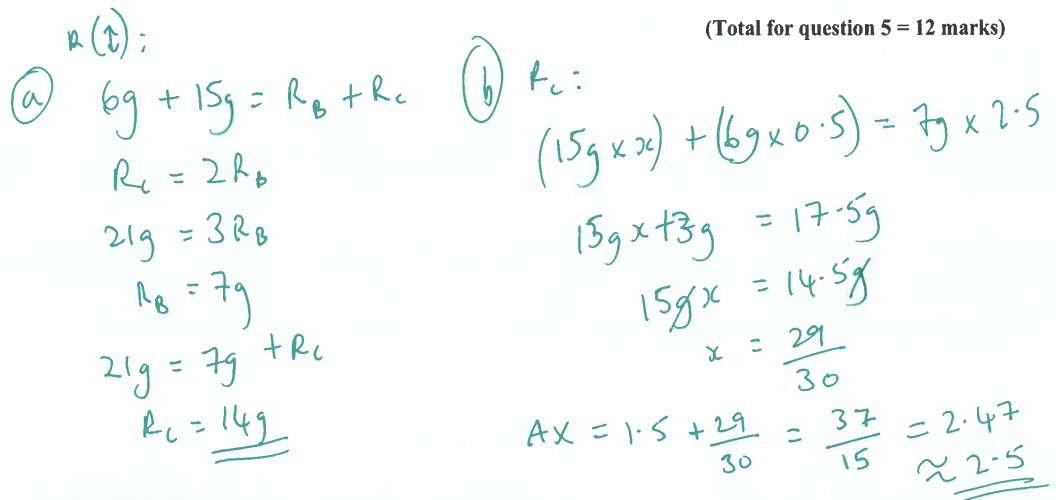 (Total for question 5 = 12 marks)
R(↕):
(a) 6g + 15g = R_B + R_C
R_C = 2R_B
21g = 3R_B
R_B = 7g
21g = 7g + R_C
R_C = 14g
(b) R_C:
(15g × x) + (6g × 0.5) = 7g × 2.5
15gx + 3g = 17.5g
15gx = 14.5g
x = 29/30
AX = 1.5 + 29/30 = 37/15 = 2.47
≈ 2.5